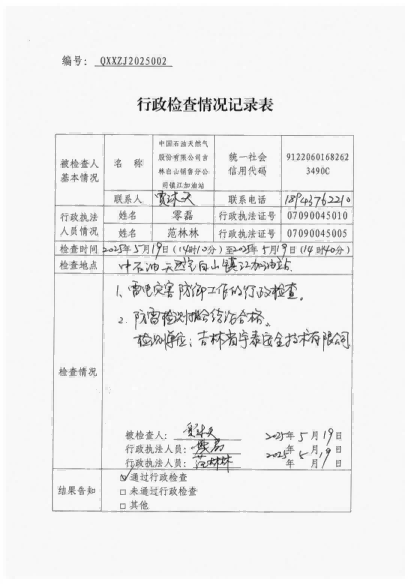 编号: QXXZJ2025002
行政检查情况记录表
被检查人基本情况
名 称
中国石油天然气股份有限公司吉林白山销售分公司镇江加油站
统一社会信用代码
91220601682623490C
联系人
联系电话
18943762210
行政执法人员情况
姓名 零磊 行政执法证号 07090045010
姓名 范林林 行政执法证号 07090045005
检查时间 2025年5月19日(14时10分)至2025年5月19日(14时40分)
检查地点 中石油天然气白山镇江加油站
检查情况
1、雷电灾害防御工作的行政检查。
2、防雷检测报告结论合格。
检测单位:吉林省宇泰安全技术有限公司
被检查人: 2025年5月19日
行政执法人员: 零磊 2025年5月19日
行政执法人员: 范林林 年 月 日
结果告知
☑ 通过行政检查
□ 未通过行政检查
□ 其他